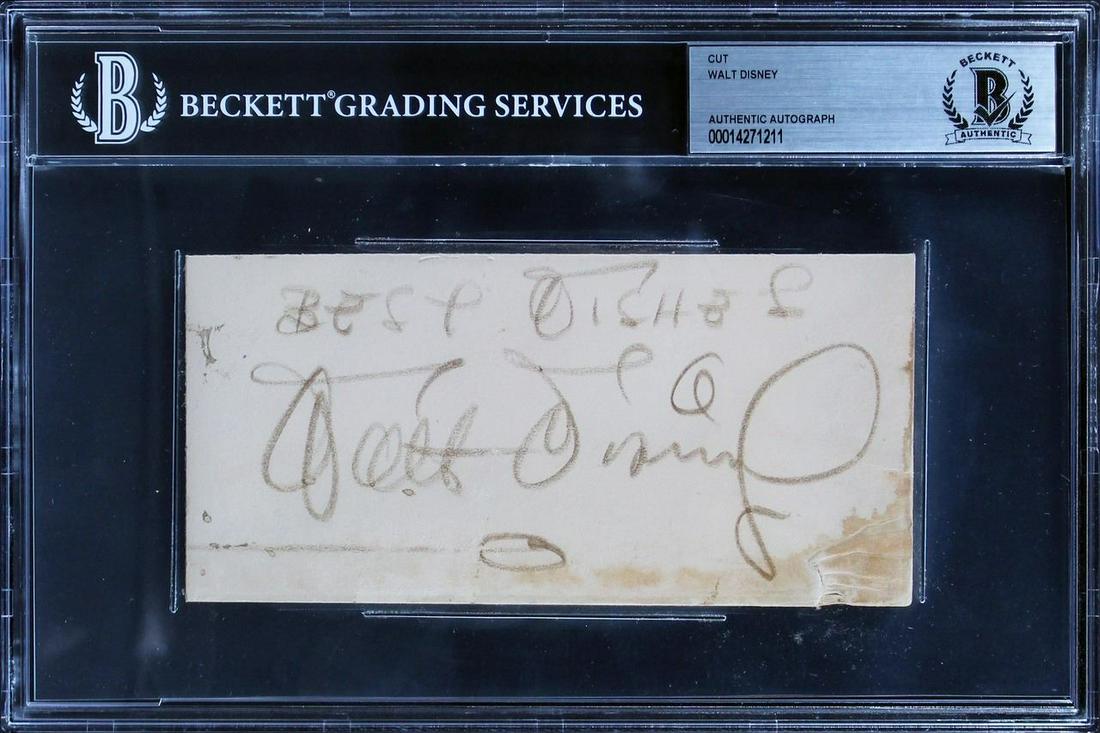 BECKETT® GRADING SERVICES
CUT
WALT DISNEY
AUTHENTIC AUTOGRAPH
00014271211
BECKETT
B
AUTHENTIC
BEST WISHES
Walt Disney